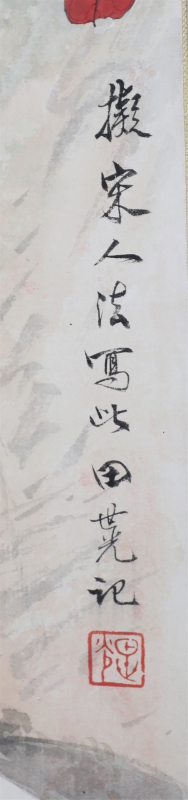 擬宋人法寫此田世光記